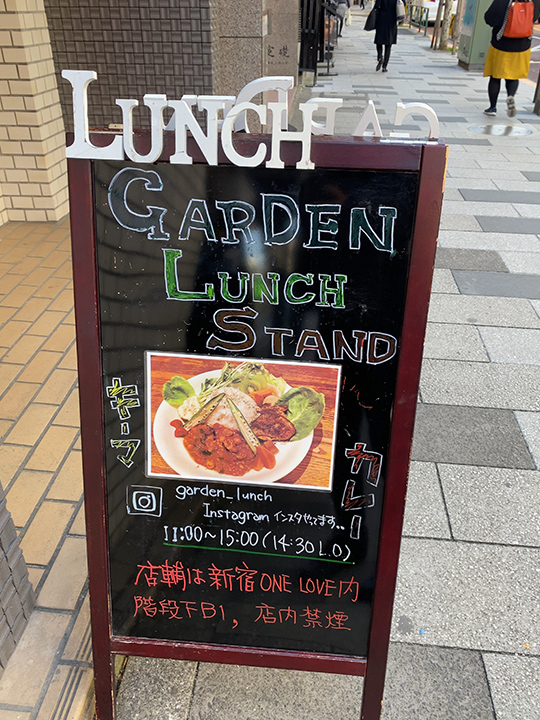 LUNCH
定礎
GARDEN
LUNCH
STAND
キーマ
カレー
garden_lunch
Instagram インスタやってます、、
11:00~15:00 (14:30 L.O)
店舗は新宿ONE LOVE内
階段下B1, 店内禁煙